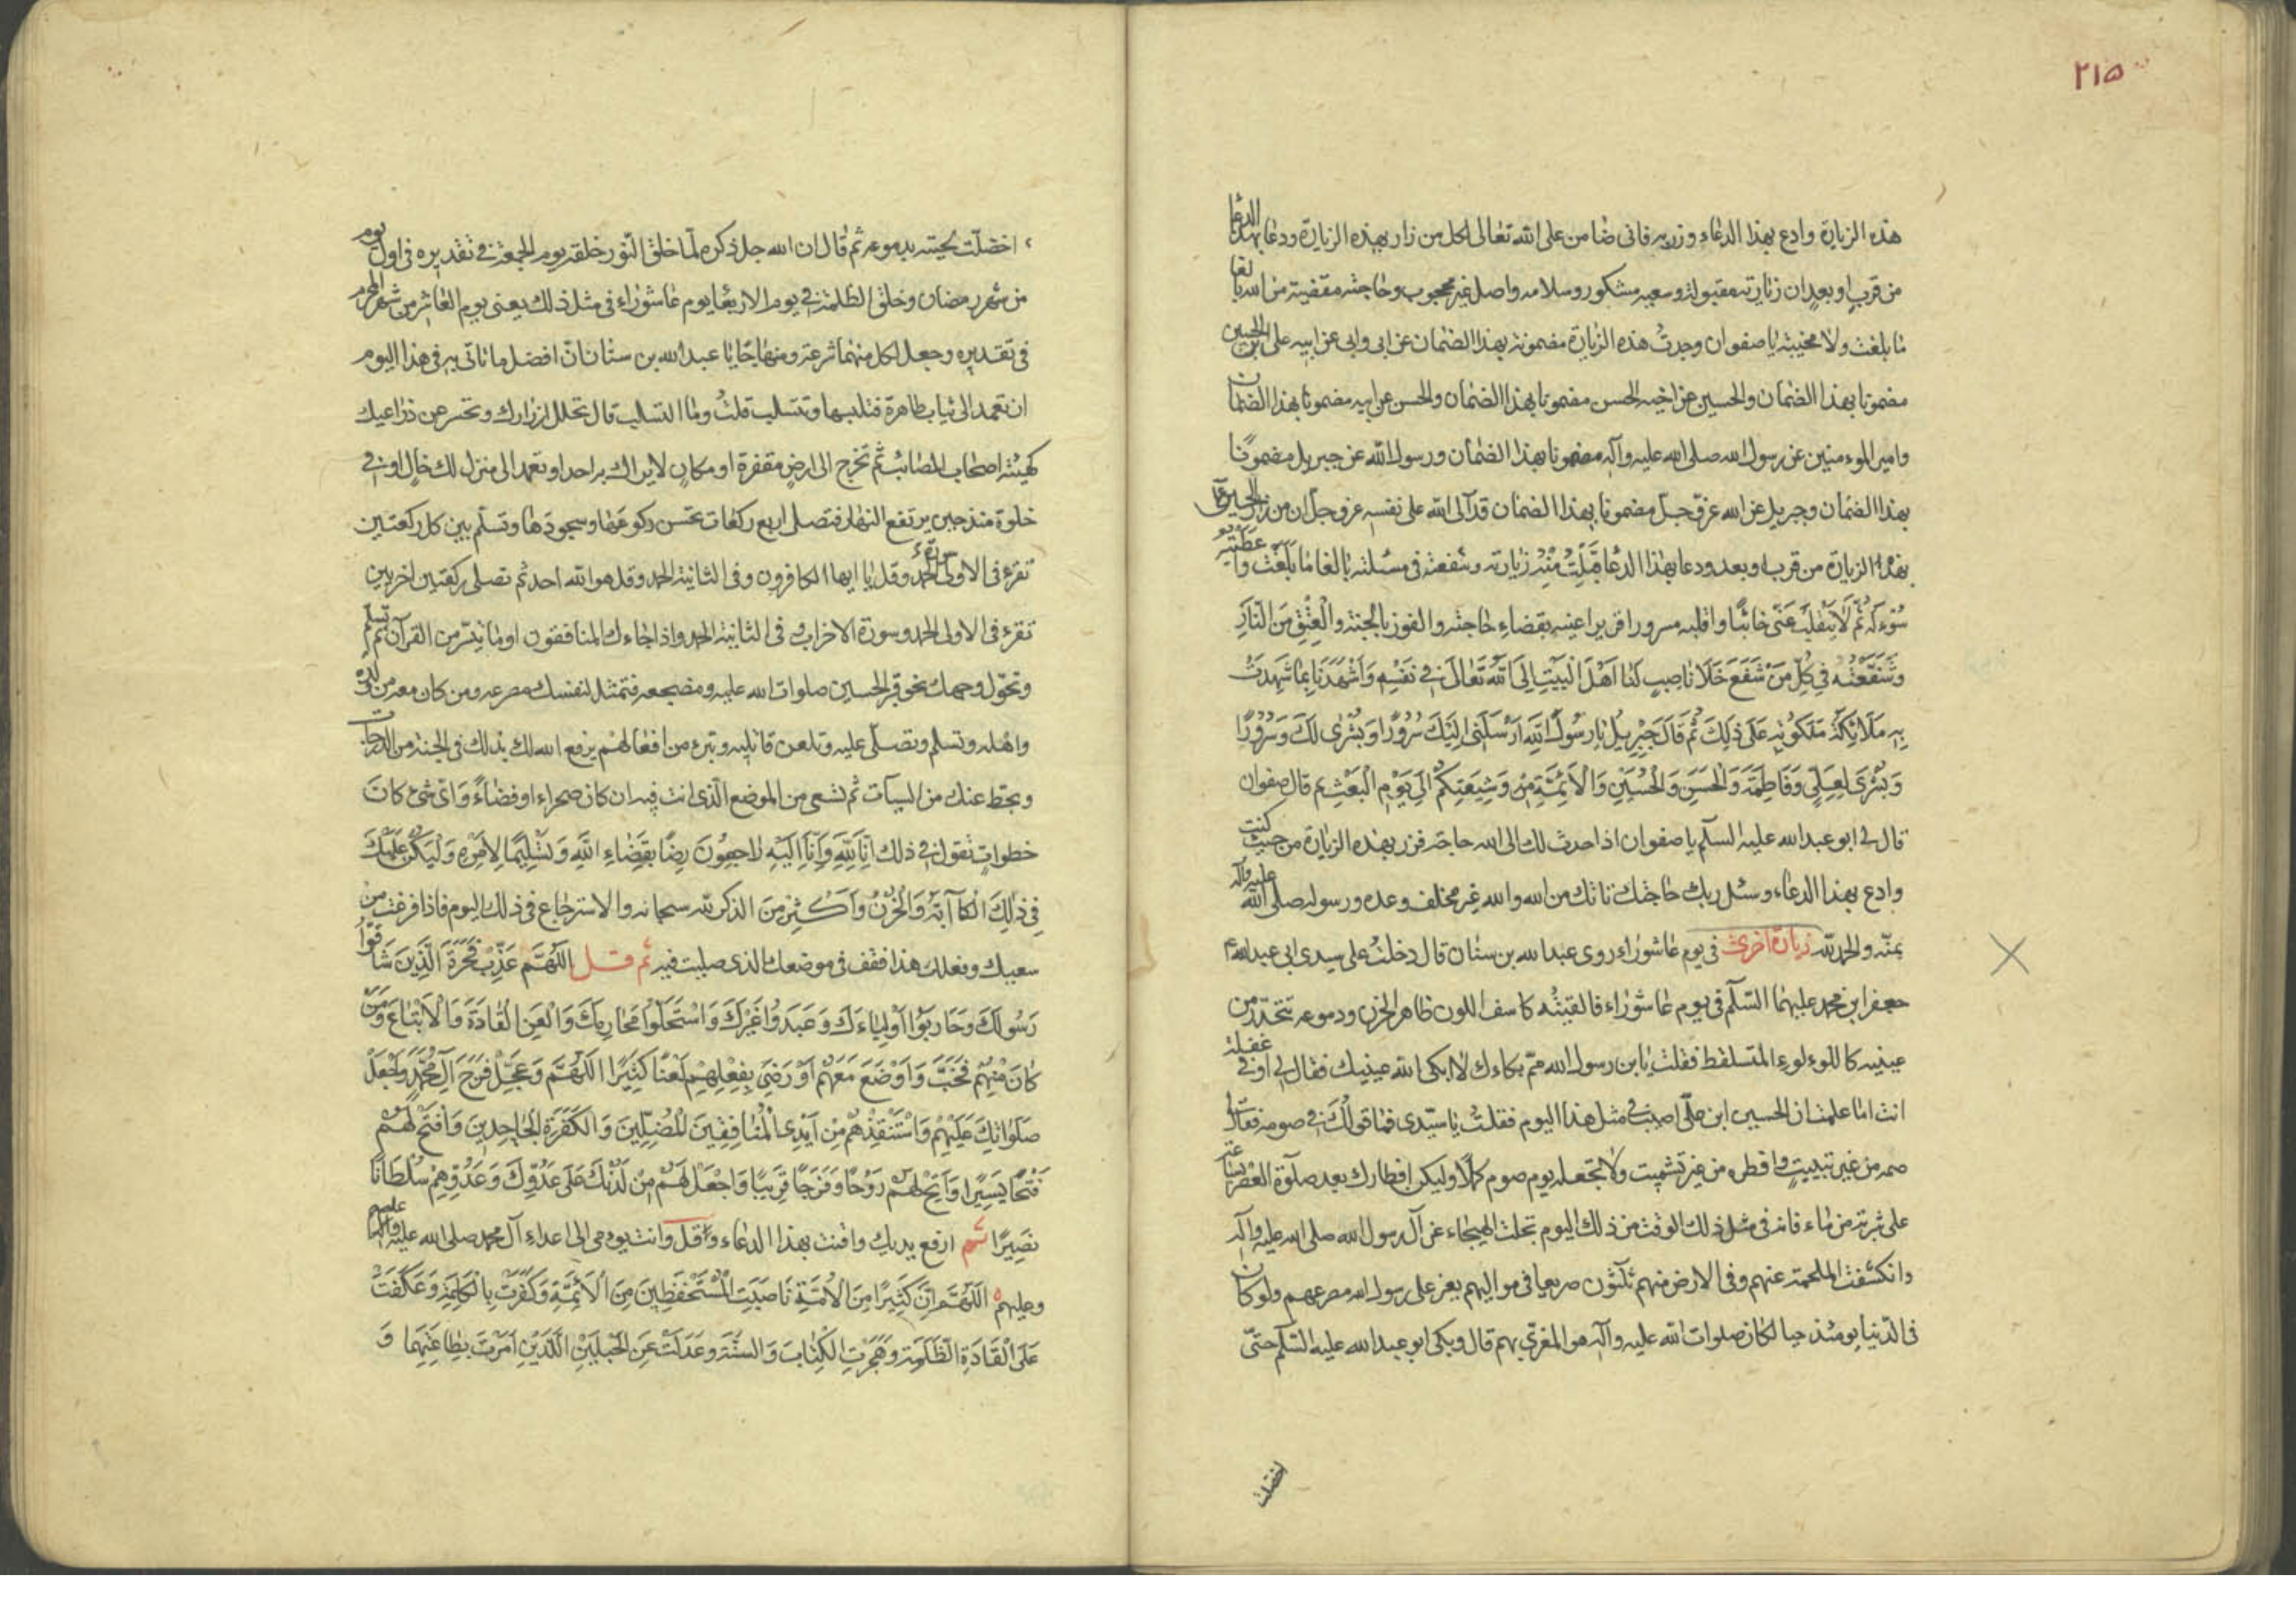 ٢١۵
هذه الزيارة وادع بهذا الدعاء وزر به فانى ضامن على الله تعالى لكل من زار بهذه الزيارة ودعا بهذا الدعا
من قرب او بعد ان زيارته مقبولة وسعيه مشكور وسلامه واصل غير محجوب وحاجته مقضية من الله بالغا
ما بلغت ولا مخيبه يا صفوان وجدت هذه الزيارة مضمونة بهذا الضمان عن ابى وابى عن ابيه على بن الحسين
مضمونا بهذا الضمان والحسين عن اخيه الحسن مضمونا بهذا الضمان والحسن عن ابيه مضمونا بهذا الضمان
وامير الموءمنين عن رسول الله صلى الله عليه وآله مضمونا بهذا الضمان ورسول الله عن جبريل مضمونًا
بهذا الضمان وجبريل عن الله عزّ وجلّ مضمونا بهذا الضمان قد آلى الله على نفسه عز وجل ان من زار الحسين
بهذه الزيارة من قرب او بعد ودعا بهذا الدعا قَبِلْتُ مِنْهُ زيارته وشفعته فى مسئلته بالغا مَا بَلَغَتْ وَاَعْطَيْتُهُ
سُوءلَهُ ثُمَّ لَا يَنْقَلِبُ عَنّى خائبًا واقلبه مسرورا قريرا عينه بقضاء حاجته والفوز بالجنة والْعِتْقِ مِنَ النَّارِ
وَشَفَّعْتُهُ فى كُلِّ مَنْ شَفَعَ خَلَا نَاصِبٍ لَنَا اَهْلَ الْبَيْتِ اِلَى اللهُ تَعَالَى فى نَفْسِهِ وَاَشْهَدَنَا بِمَا شَهِدَتْ
بِهِ مَلَائِكَةُ مَلَكُوتِهِ عَلَى ذَلِكَ ثُمَّ قَالَ جَبْرِيلُ يَا رَسُولَ اللهِ اَرْسَلَنِى اِلَيْكَ سُرُورًا وَبُشْرَى لَكَ وَسُرُورًا
وَبُشْرَى لِعَلِىٍّ وَفَاطِمَةَ وَالْحَسَنِ وَالْحُسَيْنِ وَالْاَئِمَّةِ مِنْ وَشِيعَتِكُمْ اِلَى يَوْمِ الْبَعْثِ ثم قال صفوان
قال لى ابو عبدالله عليه السلم يا صفوان اذا حدث لك الى الله حاجة فزر بهذه الزيارة من حيث كنت
وادع بهذا الدعاء وسئل ربك حاجتك تاتك من الله والله غير مخلف وعده ورسوله صلى الله عليه وآله
بمنّه والحمد لله زيارة اخرى فى يوم عاشوراء روى عبدالله بن سنان قال دخلت على سيدى ابى عبدالله
جعفر ابن محمد عليهما السّلم فى يوم عاشوراء فالفيته كاسف اللون ظاهر الحزن ودموعه تتحدّر من
عينيه كاللوءلوء المتساقط فقلت يا بن رسول الله ممّ بكاءك لا ابكى الله عينيك فقال لى او فى غفلة
انت اما علمت ان الحسين ابن على اصيب فى مثل هذا اليوم فقلت يا سيّدى فما قولك فى صومه فقال لى
صمه من غير تبييت وافطره من غير تشميت ولا تجعله يوم صوم كملا وليكن افطارك بعد صلوة العصر بساعة
على شربة من ماء فانه فى مثل ذلك الوقت من ذلك اليوم تجلت الهيجاء عن آل رسول الله صلى الله عليه وآله
وانكشفت الملحمة عنهم وفى الارض منهم ثلثون صريعا فى مواليهم يعز على رسول الله مصرعهم ولو كان
فى الدّنيا يومئذ حيا لكان صلوات الله عليه وآله هو المعزّى بهم قال وبكى ابو عبدالله عليه السّلم حتّى
اخضلت
اخضلّت لحيته بدموعه ثم قال ان الله جل ذكره لمّا خلق النّور خلقه يوم الجمعة فى تقديره فى اول يوم
من شهر رمضان وخلق الظلمة فى يوم الاربعا يوم عاشوراء فى مثل ذلك يعنى يوم العاشر من شهر المحرم
فى تقديره وجعل لكل منهما شرعة ومنهاجًا يا عبدالله بن سنان انّ افضل ما تاتى به فى هذا اليوم
ان تعمد الى ثياب طاهرة فتلبسها وتتسلب قلتُ وما التسلب قال تحلل ازرارك وتحسر عن ذراعيك
كهيئة اصحاب المصائب ثم تخرج الى ارض مقفرة او مكان لا يراك به احد او تعمد الى منزل لك خال او فى
خلوة منذ حين يرتفع النهار فتصلى اربع ركعات تحسن ركوعها وسجودها وتسلّم بين كل ركعتين
تقرء فى الاولى الحمد وقل يا ايها الكافرون وفى الثانية الحمد وقل هو الله احد ثم تصلى ركعتين اخريين
تقرء فى الاولى الحمد وسورة الاحزاب وفى الثانية الحمد واذا جاءك المنافقون او ما تيسّر من القرآن ثم تسلم
وتحوّل وجهك نحو قبر الحسين صلوات الله عليه ومضجعه فتمثل لنفسك مصرعه ومن كان معه من ولده
واهله وتسلم وتصلّى عليه وتلعن قاتليه وتبرء من افعالهم يرفع الله لك بذلك فى الجنة من الدرجات
ويحط عنك من السيآت ثم تسعى من الموضع الّذى انت فيه ان كان صحراء او فضاءً وَاىّ شىء كان
خطوات تقول فى ذلك اِنَّا لِلهِ وَاِنَّا اِلَيْهِ رَاجِعُونَ رِضًا بِقَضَاءِ اللهِ وَتَسْلِيمًا لِاَمْرِهِ وَلْيَكُنْ عَلَيْكَ
فِى ذَلِكَ الْكَآبَةُ وَالْحُزْنُ وَاَكْثِرْ مِنَ الذكر لله سبحانه والاسترجاع فى ذلك اليوم فاذا فرغت من
سعيك وفعلك هذا فقف فى موضعك الذى صليت فيه ثم قل اَللّهُمَّ عَذِّبْ فَجَرَةَ الَّذِينَ شَاقُّوا
رَسُولَكَ وَحَارَبُوا اَوْلِيَاءَكَ وَعَبَدُوا غَيْرَكَ وَاسْتَحَلُّوا مَحَارِمَكَ وَالْعَنِ الْقَادَةَ وَالْاَتْبَاعَ وَمَنْ
كَانَ مِنْهُمْ فَخَبَّ وَاَوْضَعَ مَعَهُمْ اَوْ رَضِىَ بِفِعْلِهِمْ لَعْنًا كَثِيرًا اَللّهُمَّ وَعَجِّلْ فَرَجَ آلِ مُحَمَّدٍ وَاجْعَلْ
صَلَوَاتِكَ عَلَيْهِمْ وَاسْتَنْقِذْهُمْ مِنْ اَيْدِى الْمُنَافِقِينَ الْمُضِلِّينَ وَالْكَفَرَةِ الْجَاحِدِينَ وَافْتَحْ لَهُمْ
فَتْحًا يَسِيرًا وَاَتِحْ لَهُمْ رَوْحًا وَفَرَجًا قَرِيبًا وَاجْعَلْ لَهُمْ مِنْ لَدُنْكَ عَلَى عَدُوِّكَ وَعَدُوِّهِمْ سُلْطَانًا
نَصِيرًا ثم ارفع يديك واقنت بهذا الدعاء وقل وانت تومى الى اعداء آل محمد صلى الله عليه وآله
وعليهم اَللّهُمَّ اِنَّ كَثِيرًا مِنَ الْاُمَّةِ نَاصَبَتِ الْمُسْتَحْفَظِينَ مِنَ الْاَئِمَّةِ وَكَفَرَتْ بِالْكَلِمَةِ وَعَكَفَتْ
عَلَى الْقَادَةِ الظَّلَمَةِ وَهَجَرَتِ الْكِتَابَ وَالسُّنَّةَ وَعَدَلَتْ عَنِ الْحَبْلَيْنِ اللَّذَيْنِ اَمَرْتَ بِطَاعَتِهِمَا وَ